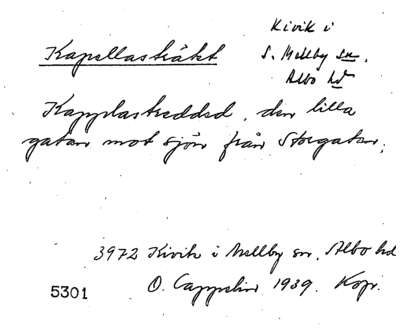 Kivik i
Kapellasträkt S. Mellby sn.
Albo hd
Kapplastredded, den lilla
gatan mot sjön från Storgatan.
3972 Kivik i Mellby sn, Albo hd
5301 O. Cappelin 1939. Kopr.